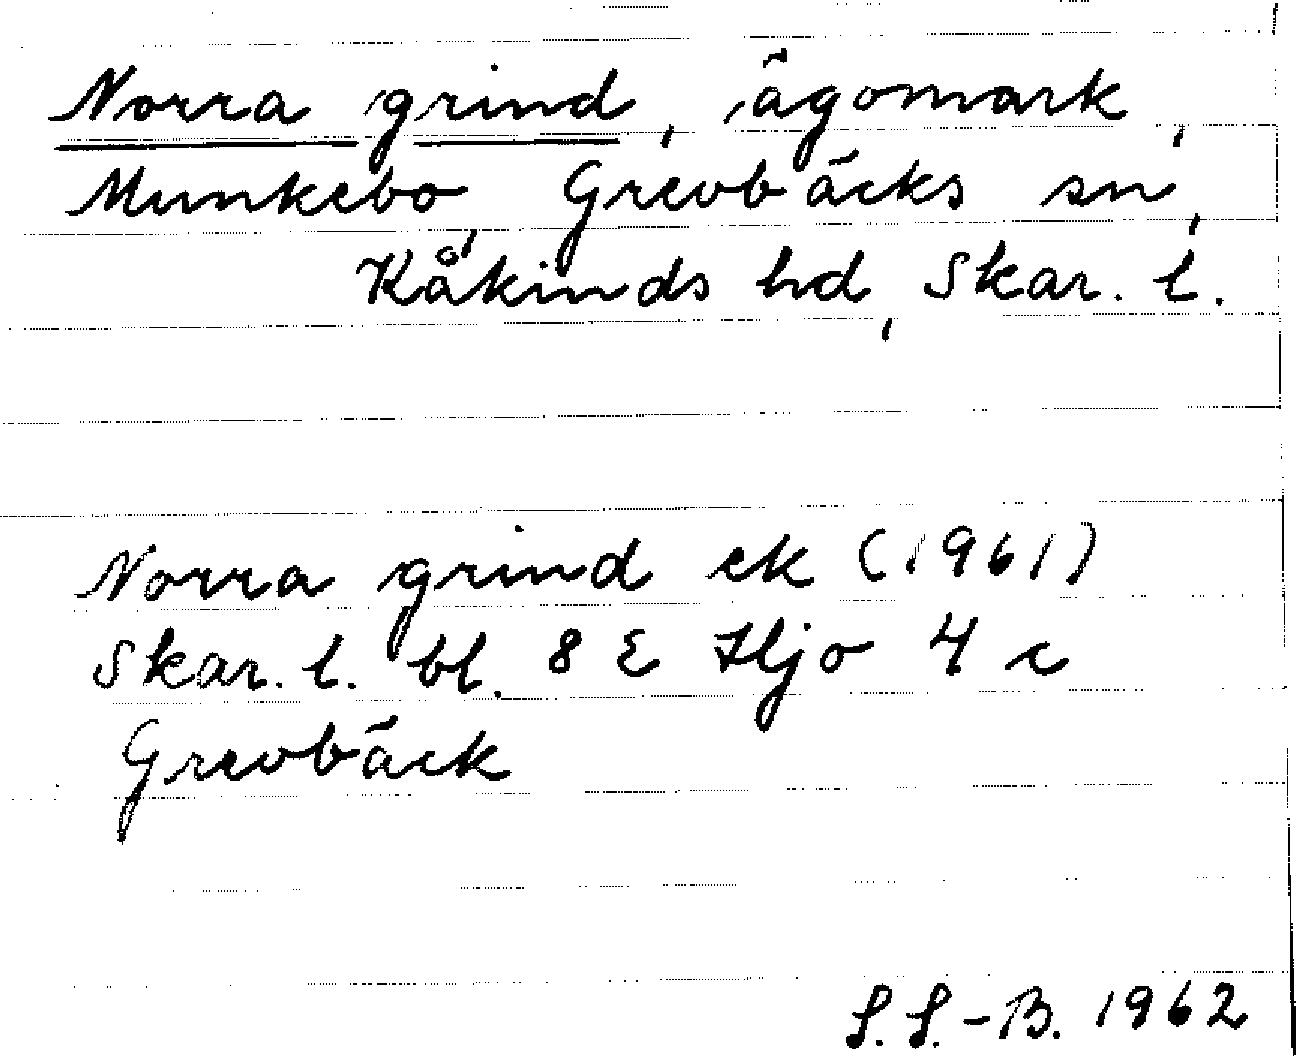 Norra grind, ägomark,
Munkebo, Grevbäcks sn,
Kåkinds hd, Skar. l.
Norra grind ek (1961)
Skar. l. bl. 8 E Hjo 4 c
Grevbäck
S.S.-B. 1962